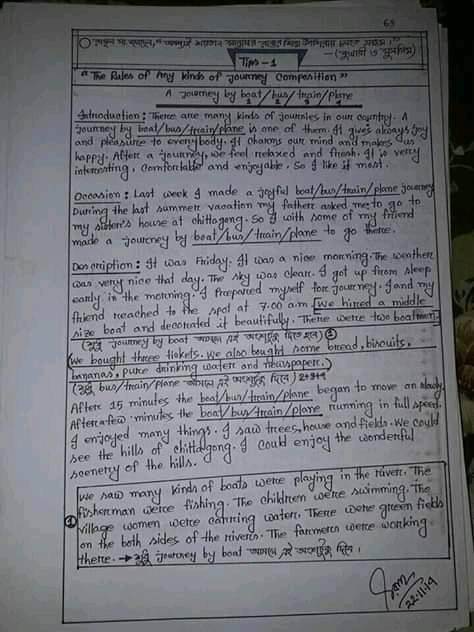 65
Tips-1
"The Rules of Any kinds of Journey Composition"
A Journey by boat/bus/train/plane
1 2 3 4
Introduction: There are many kinds of journies in our country. A
journey by boat/bus/train/plane is one of them. It gives always joy
and pleasure to everybody. It charms our mind and makes us
happy. After a journey, we feel relaxed and fresh. It is very
interesting, comfortable and enjoyable. So I like it most.
Occasion: Last week I made a joyful boat/bus/train/plane journey
During the last summer vacation my father asked me to go to
my sister's house at chittagong. So I with some of my friend
made a journey by boat/bus/train/plane to go there.
Description: It was Friday. It was a nice morning. The weather
was very nice that day. The sky was clear. I got up from sleep
early in the morning. I Prepared myself for journey. I and my
friend reached to the spot at 7.00 a.m. We hired a middle
size boat and decorated it beautifully. There were two boatmen.
(শুধু journey by boat আসলে এই অংশটুকু দিতে হবে) 1
We bought three tickets. We also bought some bread, biscuits,
bananas, pure drinking water and newspaper.
(শুধু bus/train/plane আসলে এই অংশটুকু দিবে) 2+3+4
After 15 minutes the boat/bus/train/plane began to move on slowly
After a few minutes the boat/bus/train/plane running in full speed.
I enjoyed many things. I saw trees, house and fields. We could
see the hills of chittagong. I could enjoy the wonderful
scenery of the hills.
We saw many kinds of boats were playing in the river. The
fisherman were fishing. The children were swimming. The
village women were carring water. There were green fields
1 on the both sides of the rivers. The farmers were working
there. → শুধু journey by boat আসলে এই অংশটুকু দিবে।
22.11.19